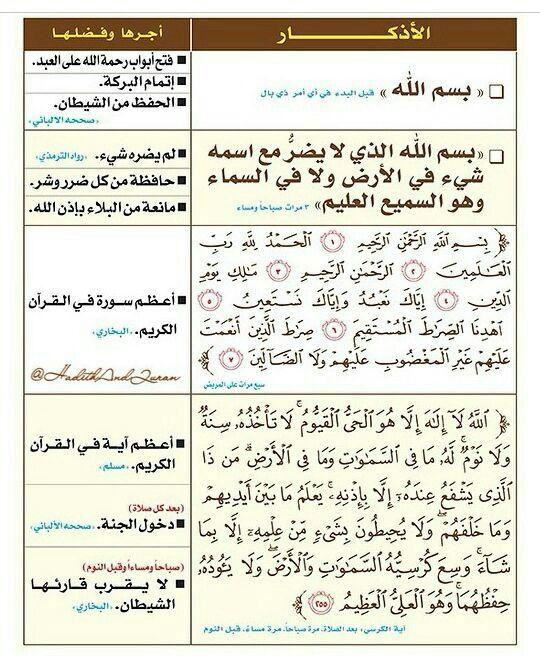 الأذكـــار
أجرها وفضلها
« بسم الله » قبل البدء في أي أمر ذي بال
فتح أبواب رحمة الله على العبد.
إتمام البركة.
الحفظ من الشيطان.
«صححه الألباني»
«بسم الله الذي لا يضرُّ مع اسمه
شيء في الأرض ولا في السماء
وهو السميع العليم» ٣ مرات صباحاً ومساء
لم يضره شيء. «رواه الترمذي»
حافظة من كل ضرر وشر.
مانعة من البلاء بإذن الله.
﴿ بِسْمِ اللَّهِ الرَّحْمَٰنِ الرَّحِيمِ ١ الْحَمْدُ لِلَّهِ رَبِّ
الْعَالَمِينَ ٢ الرَّحْمَٰنِ الرَّحِيمِ ٣ مَالِكِ يَوْمِ
الدِّينِ ٤ إِيَّاكَ نَعْبُدُ وَإِيَّاكَ نَسْتَعِينُ ٥
اهْدِنَا الصِّرَاطَ الْمُسْتَقِيمَ ٦ صِرَاطَ الَّذِينَ أَنْعَمْتَ
عَلَيْهِمْ غَيْرِ الْمَغْضُوبِ عَلَيْهِمْ وَلَا الضَّالِّينَ ٧ ﴾
سبع مرات على المريض
أعظم سورة في القرآن
الكريم. «البخاري»
@HadithAndQuran
﴿ اللَّهُ لَا إِلَٰهَ إِلَّا هُوَ الْحَيُّ الْقَيُّومُ ۚ لَا تَأْخُذُهُ سِنَةٌ
وَلَا نَوْمٌ ۚ لَهُ مَا فِي السَّمَاوَاتِ وَمَا فِي الْأَرْضِ ۗ مَن ذَا
الَّذِي يَشْفَعُ عِندَهُ إِلَّا بِإِذْنِهِ ۚ يَعْلَمُ مَا بَيْنَ أَيْدِيهِمْ
وَمَا خَلْفَهُمْ ۖ وَلَا يُحِيطُونَ بِشَيْءٍ مِّنْ عِلْمِهِ إِلَّا بِمَا
شَاءَ ۚ وَسِعَ كُرْسِيُّهُ السَّمَاوَاتِ وَالْأَرْضَ ۖ وَلَا يَئُودُهُ
حِفْظُهُمَا ۚ وَهُوَ الْعَلِيُّ الْعَظِيمُ ٢٥٥ ﴾
آية الكرسي، بعد الصلاة، مرة صباحاً، مرة مساءً، قبل النوم
أعظم آية في القرآن
الكريم. «مسلم»
(بعد كل صلاة)
دخول الجنة. «صححه الألباني»
(صباحاً ومساءاً وقبل النوم)
لا يقرب قارئها
الشيطان. «البخاري»